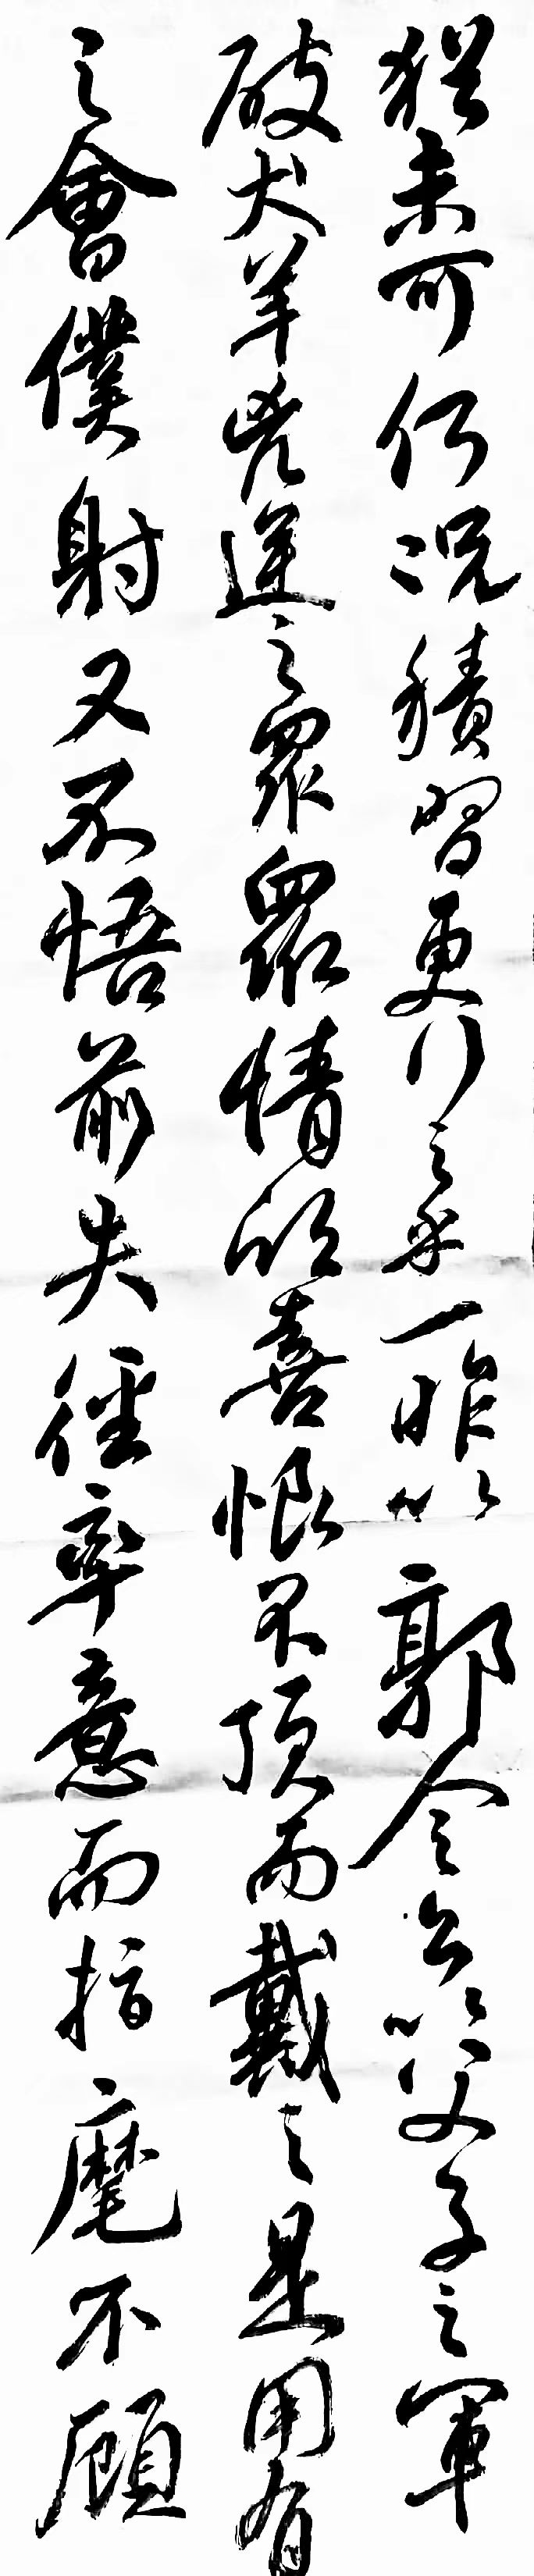 猶未可何况積習更行之乎一昨以郭令公以父子之軍
破犬羊兇逆之眾眾情欣喜恨不頂而戴之是用有
之會僕射又不悟前失徑率意而指麾不顧